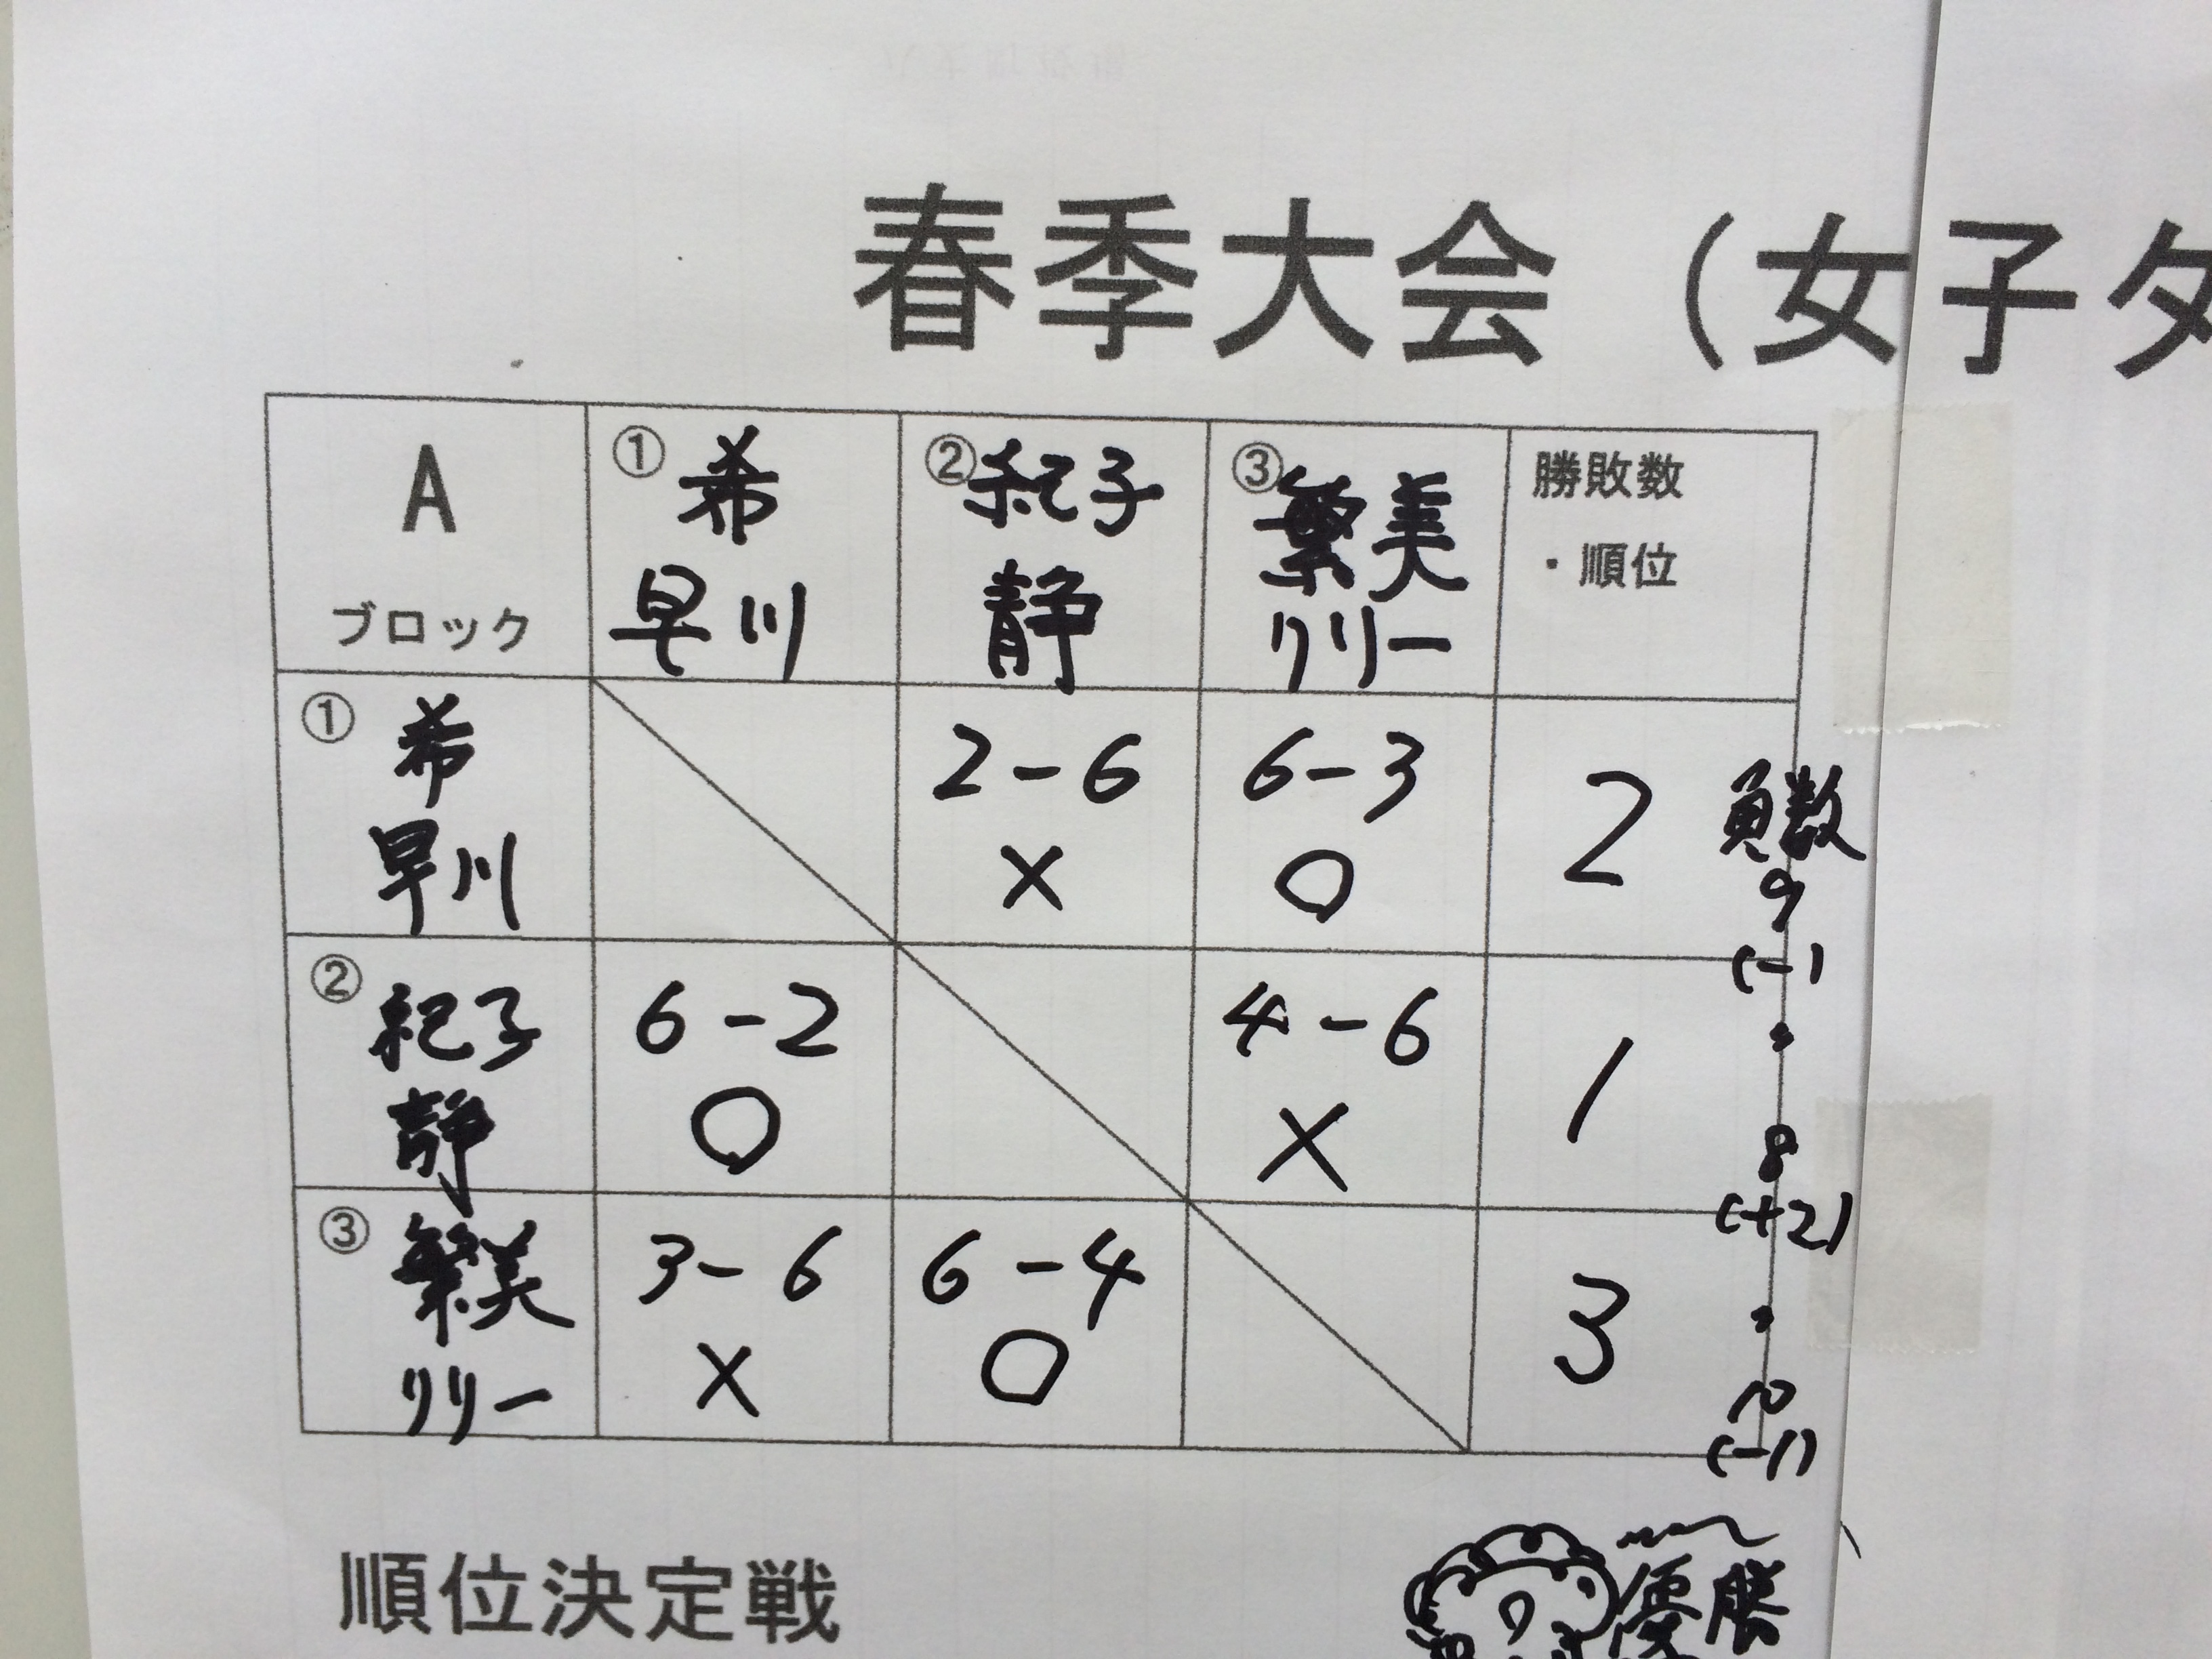 春季大会（女子ダ
A
ブロック
① 希
早川
② 紀子
静
③ 繁美
リリー
勝敗数
・順位
① 希
早川
2-6
×
6-3
○
2
負数
9
(-1
② 紀子
静
6-2
○
4-6
×
1
・
8
(+2)
③ 繁美
リリー
3-6
×
6-4
○
3
・
10
(-1)
順位決定戦
優勝